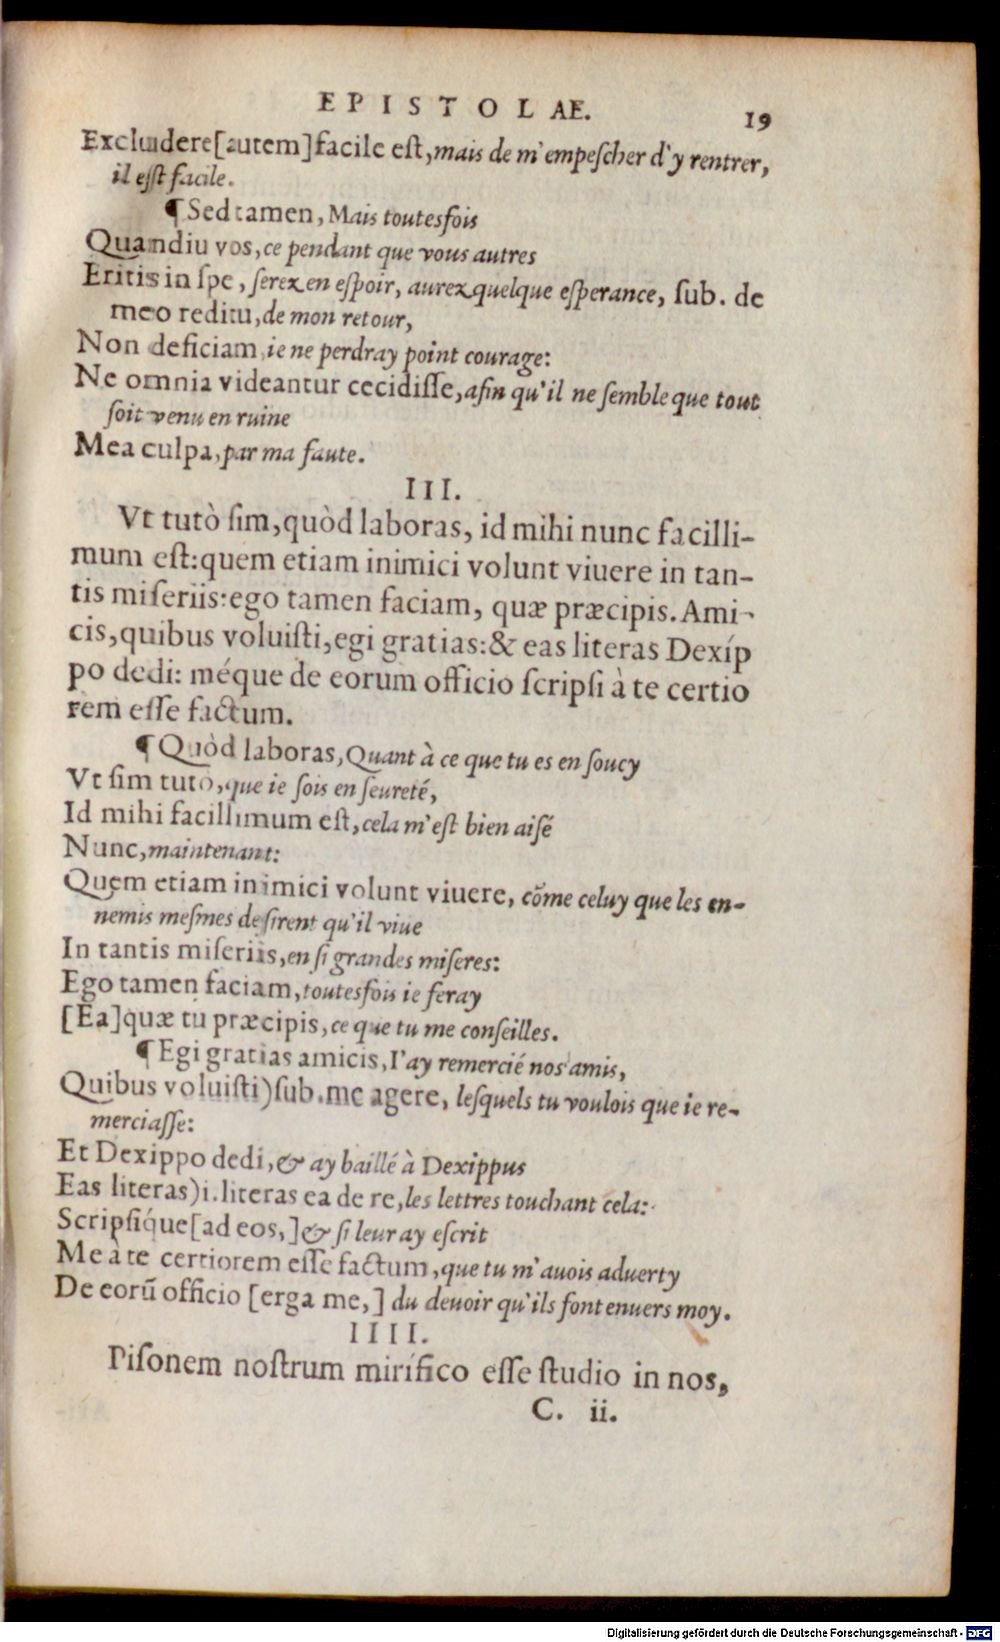 EPISTOLAE. 19
Excludere[autem]facile est,mais de m'empescher d'y rentrer,
il esst facile.
¶Sed tamen, Mais toutesfois
Quandiu vos,ce pendant que vous autres
Eritis in spe, serez en espoir, aurez quelque esperance, sub. de
meo reditu,de mon retour,
Non deficiam,ie ne perdray point courage:
Ne omnia videantur cecidisse,afin qu'il ne semble que tout
soit venu en ruine
Mea culpa,par ma faute.
III.
Vt tutò sim,quòd laboras, id mihi nunc facilli-
mum est:quem etiam inimici volunt viuere in tan-
tis miseriis:ego tamen faciam, quæ præcipis.Ami-
cis,quibus voluisti,egi gratias:& eas literas Dexíp
po dedi: méque de eorum officio scripsi à te certio
rem esse factum.
¶Quòd laboras,Quant à ce que tu es en soucy
Vt sim tuto,que ie sois en seureté,
Id mihi facillimum est,cela m'est bien aisé
Nunc,maintenant:
Quem etiam inimici volunt viuere, cõme celuy que les en-
nemis mesmes desirent qu'il viue
In tantis miseriis,en si grandes miseres:
Ego tamen faciam,toutesfois ie feray
[Ea]quæ tu præcipis,ce que tu me conseilles.
¶Egi gratias amicis,I'ay remercié nos amis,
Quibus voluisti)sub.me agere, lesquels tu voulois que ie re-
merciasse:
Et Dexippo dedi,& ay baillé à Dexippus
Eas literas)i.literas ea de re,les lettres touchant cela:
Scripsíque[ad eos,]& si leur ay escrit
Me à te certiorem esse factum,que tu m'auois aduerty
De eorũ officio [erga me,] du deuoir qu'ils font enuers moy.
IIII.
Pisonem nostrum mirífico esse studio in nos,
C. ii.
Digitalisierung gefördert durch die Deutsche Forschungsgemeinschaft - DFG